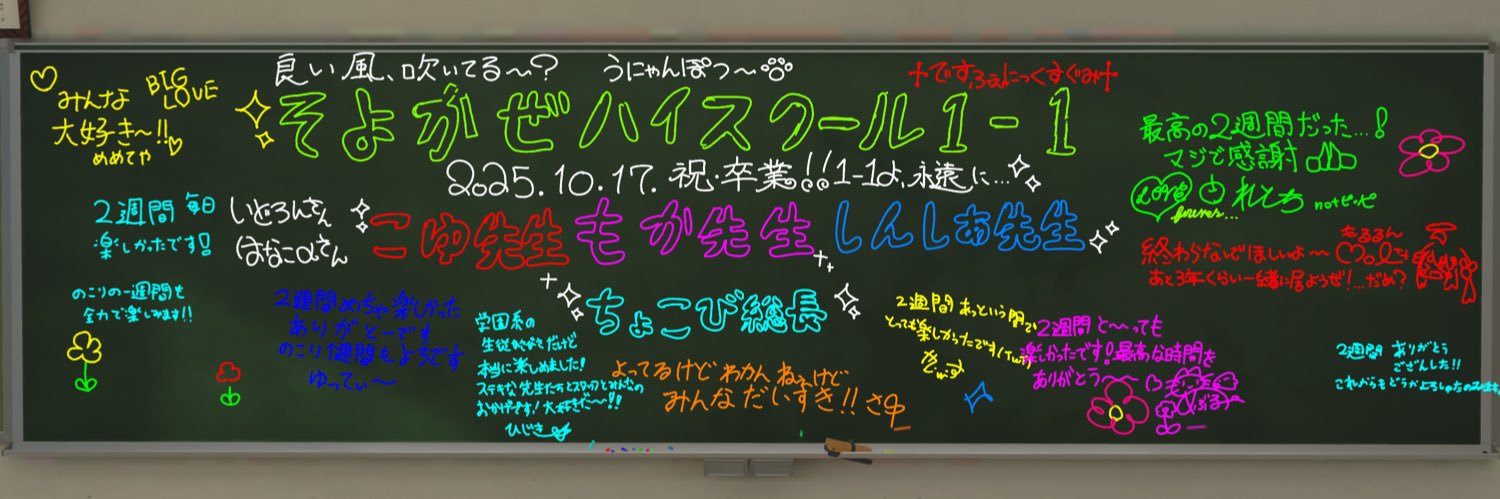 良い風、吹いてる〜?
うにゃんぽつ〜
そよかぜハイスクール1-1
2025.10.17. 祝・卒業!!1-1よ、永遠に…
こゆ先生 もか先生 しんしあ先生
ちょこび総長
みんな
BIG LOVE
大好き〜!!
めめてや
2週間 毎日
楽しかったです!
いどろんさん
はなこαさん
のこりの一週間も
全力で楽しみます!!
2週間めちゃ楽しかった
ありがと〜です
のこり1週間もよろです
ゆってぃ〜
学園系の
本当に楽しめました!
ステキな先生たちとスタッフとみんなの
おかげです!大好きだ〜!!
ひじき
よってるけどわかんねぇけど
みんなだいすき!!
2週間 あっという間で
とっても楽しかったです
2週間と〜っても
楽しかったです!最高な時間を
ありがとう〜〜
†ですふぇにっくすぐみ†
最高の2週間だった…!
マジで感謝
LOVE
forever...
れとち
notピ・ピ
終わらないでほしいよ〜
もるるん
あと3年くらい一緒に居ようぜ!…だめ?
2週間 ありがとう
ござんした!!